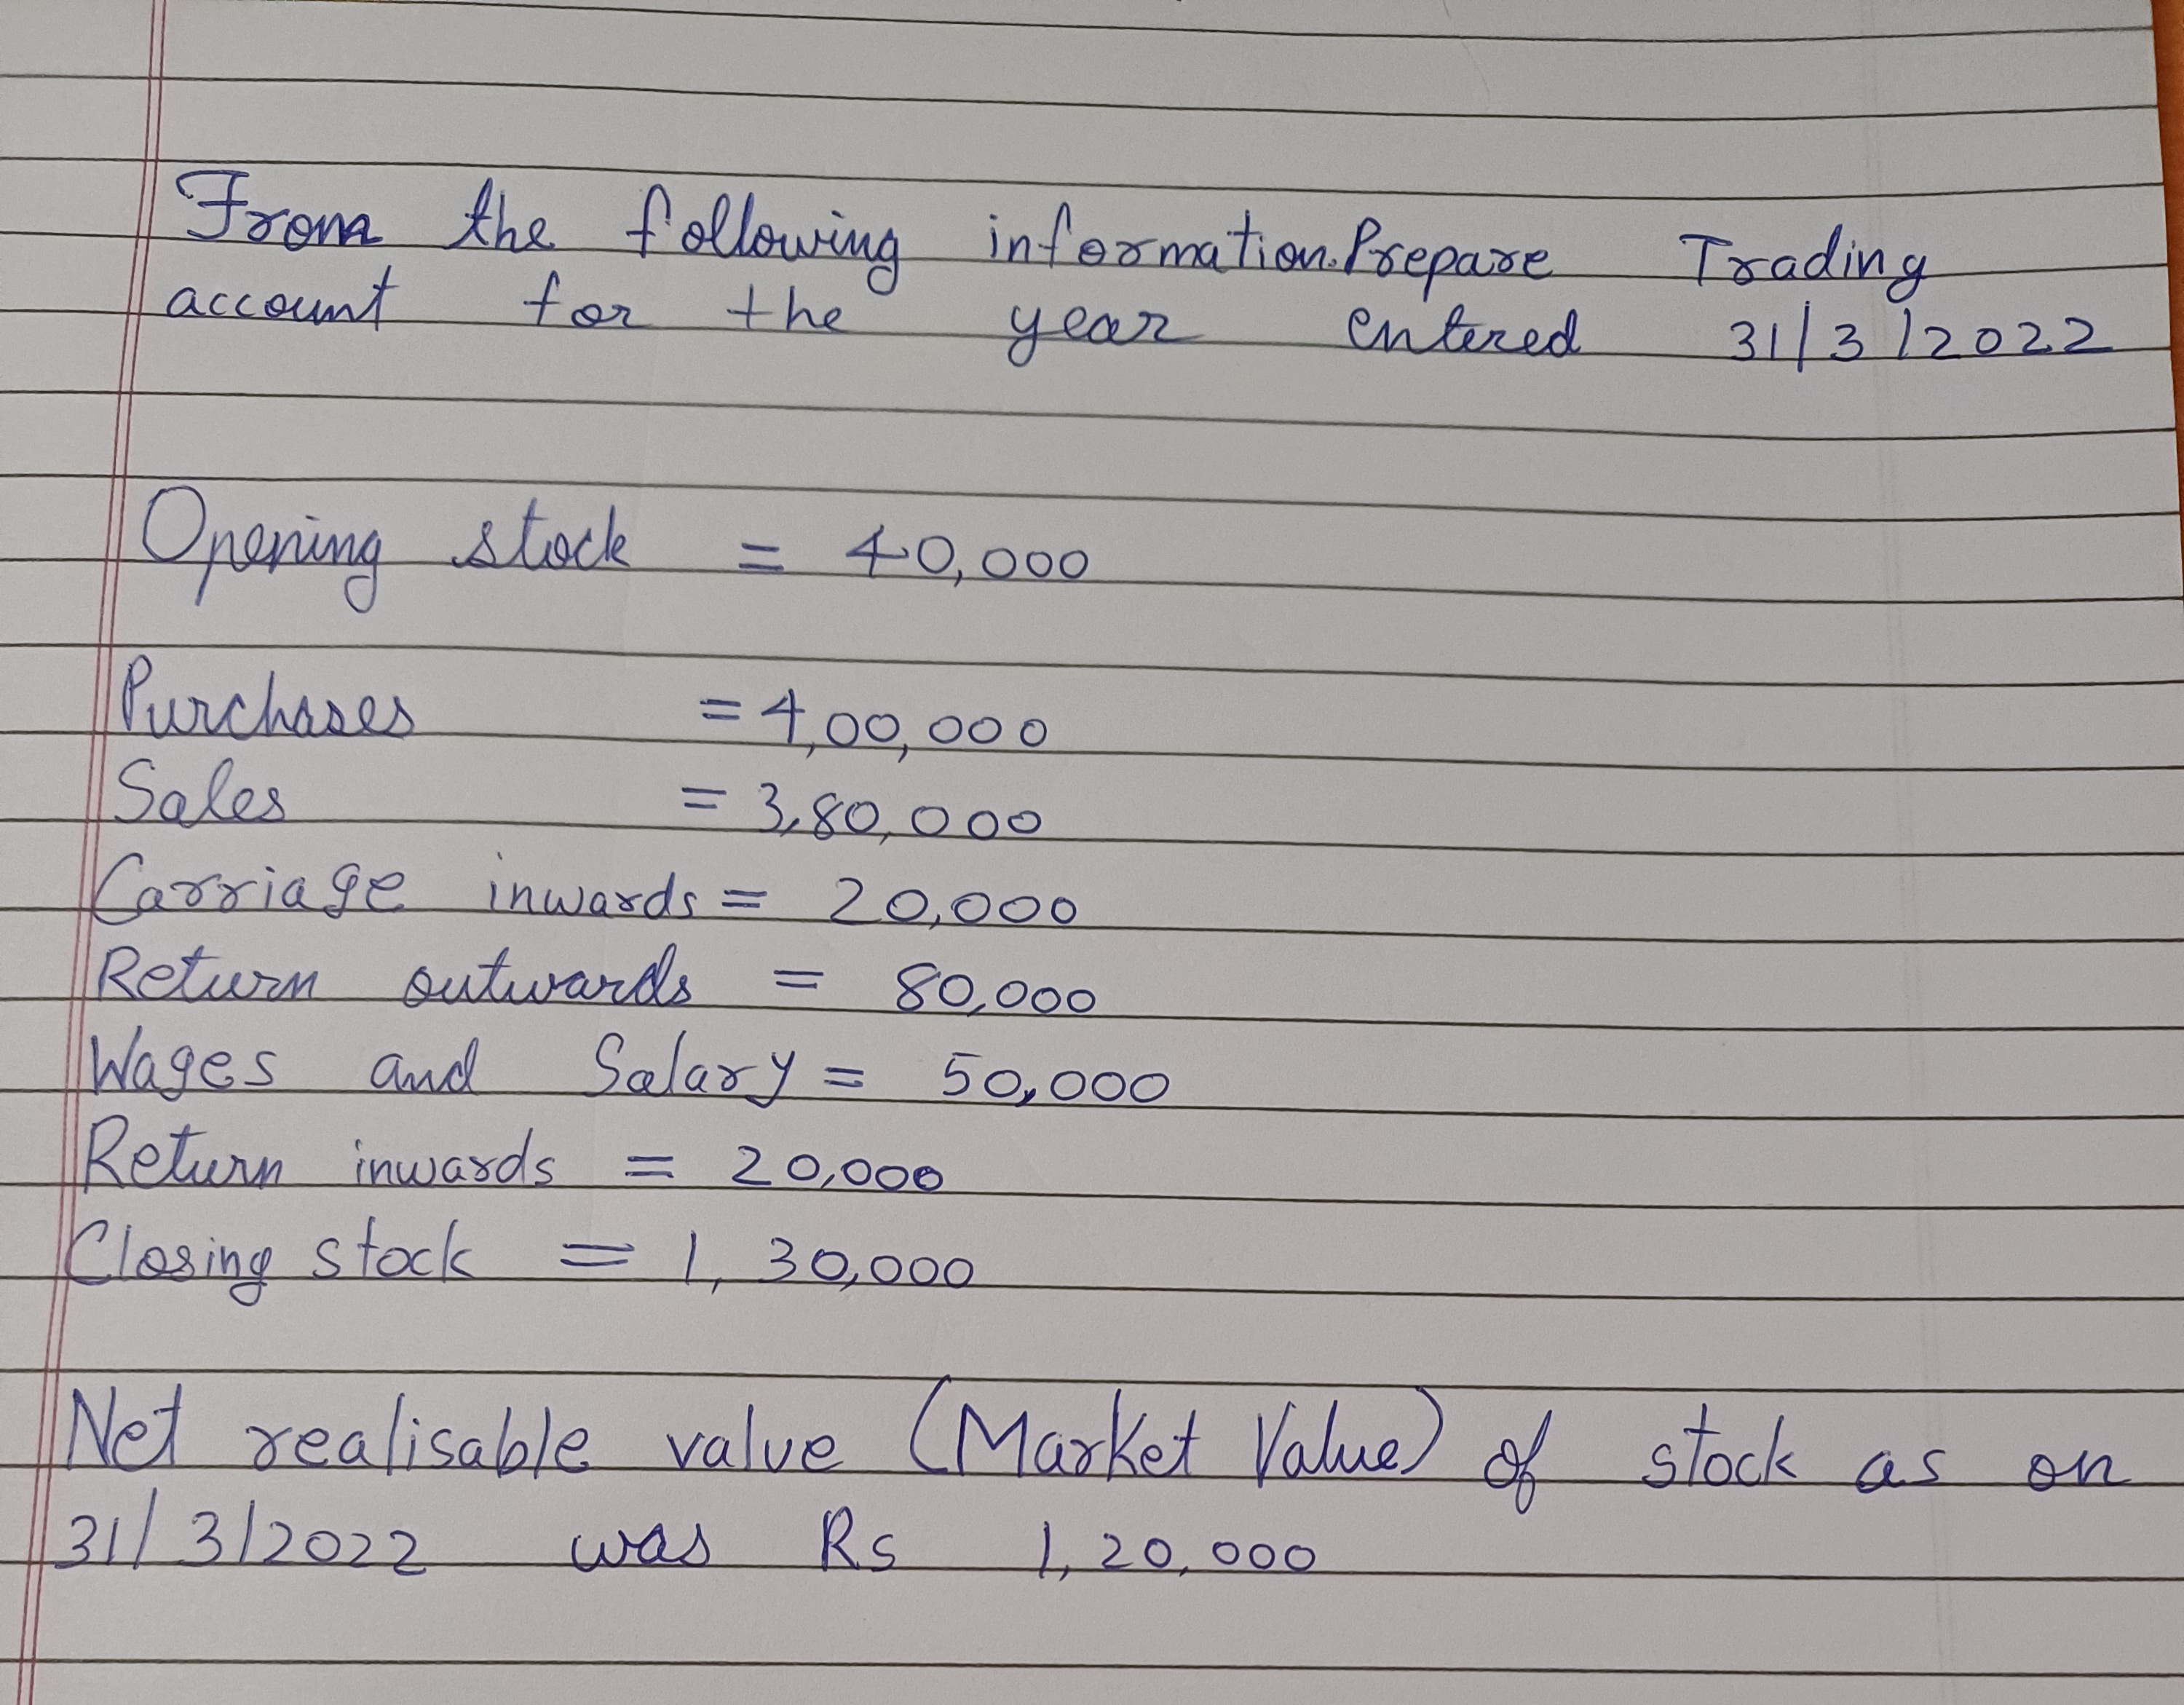 From the following information. Prepare Trading
account for the year entered 31/3/2022
Opening stock = 40,000
Purchases = 4,00,000
Sales = 3,80,000
Carriage inwards = 20,000
Return outwards = 80,000
Wages and Salary = 50,000
Return inwards = 20,000
Closing stock = 1,30,000
Net realisable value (Market Value) of stock as on
31/3/2022 was Rs 1,20,000